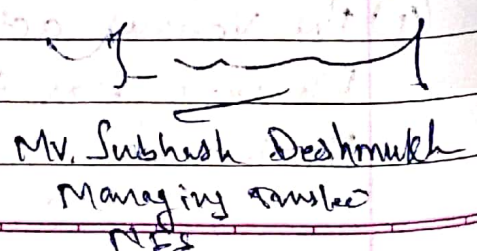 Mr. Subhash Deshmukh
Managing Trustee
NES